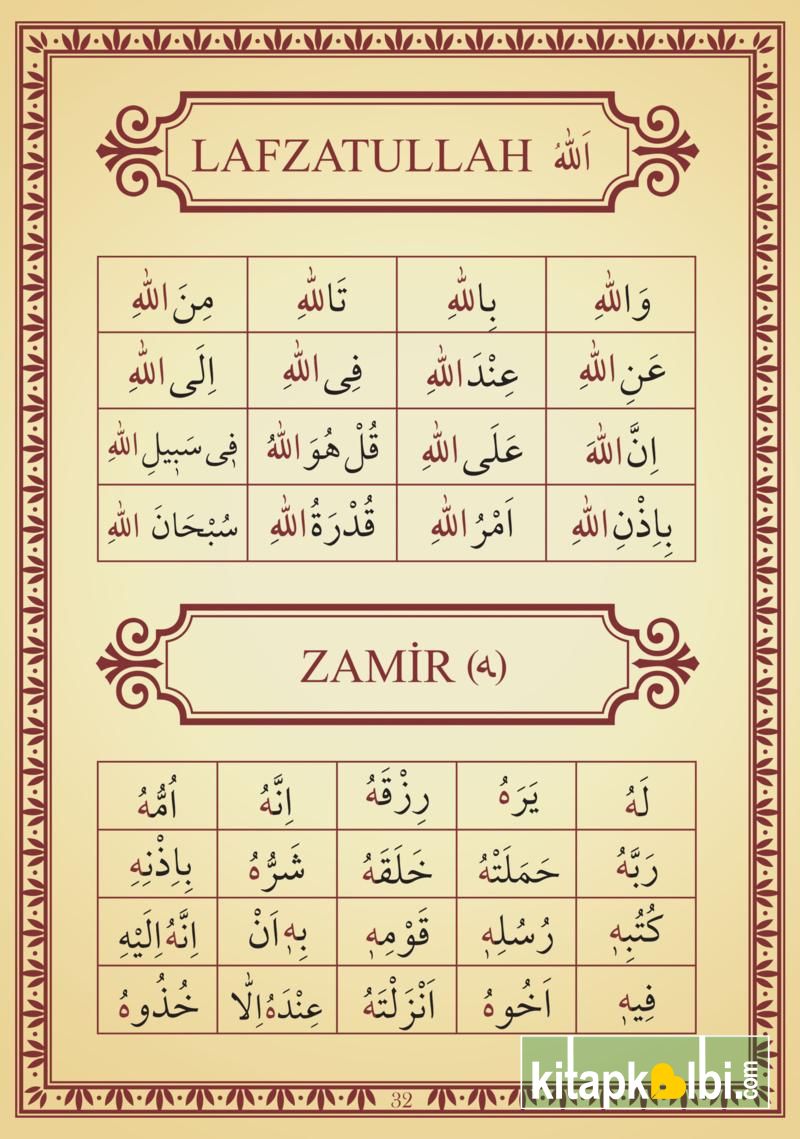 LAFZATULLAH اَللّٰهُ
وَاللّٰهِ بِاللّٰهِ تَاللّٰهِ مِنَ اللّٰهِ
عَنِ اللّٰهِ عِنْدَ اللّٰهِ فِى اللّٰهِ اِلَى اللّٰهِ
اِنَّ اللّٰهَ عَلَى اللّٰهِ قُلْ هُوَ اللّٰهُ فٖى سَبٖيلِ اللّٰهِ
بِاِذْنِ اللّٰهِ اَمْرُ اللّٰهِ قُدْرَةُ اللّٰهِ سُبْحَانَ اللّٰهِ
ZAMİR (ـه)
لَهُ يَرَهُ رِزْقَهُ اِنَّهُ اُمُّهُ
رَبَّهُ حَمَلَتْهُ خَلَقَهُ شَرُّهُ بِاِذْنِهِ
كُتُبِهٖ رُسُلِهٖ قَوْمِهٖ بِهٖ اَنْ اِنَّهُ اِلَيْهِ
فِيهٖ اَخُوهُ اَنْزَلْتَهُ عِنْدَهُ اِلَّا خُذُوهُ
32
kitapkalbi.com